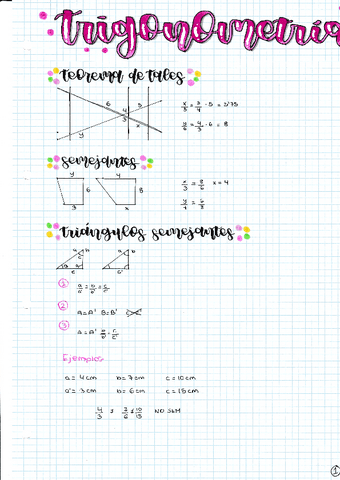 Trigonometría
teorema de tales
6 4 5
3
y x
x/5 = 3/4 · 5 = 3/75
y/6 = 4/3 · 6 = 8
semejantes
y 4
6 8
3 x
x/3 = 8/6 x = 4
triángulos semejantes
① a/a' = b/b' = c/c'
② A = A' B = B'
③ A = A' b/b' = c/c'
Ejemplos
a = 4cm b = 7cm c = 10cm
a' = 3cm b = 6cm c = 15cm
NO SEM
①